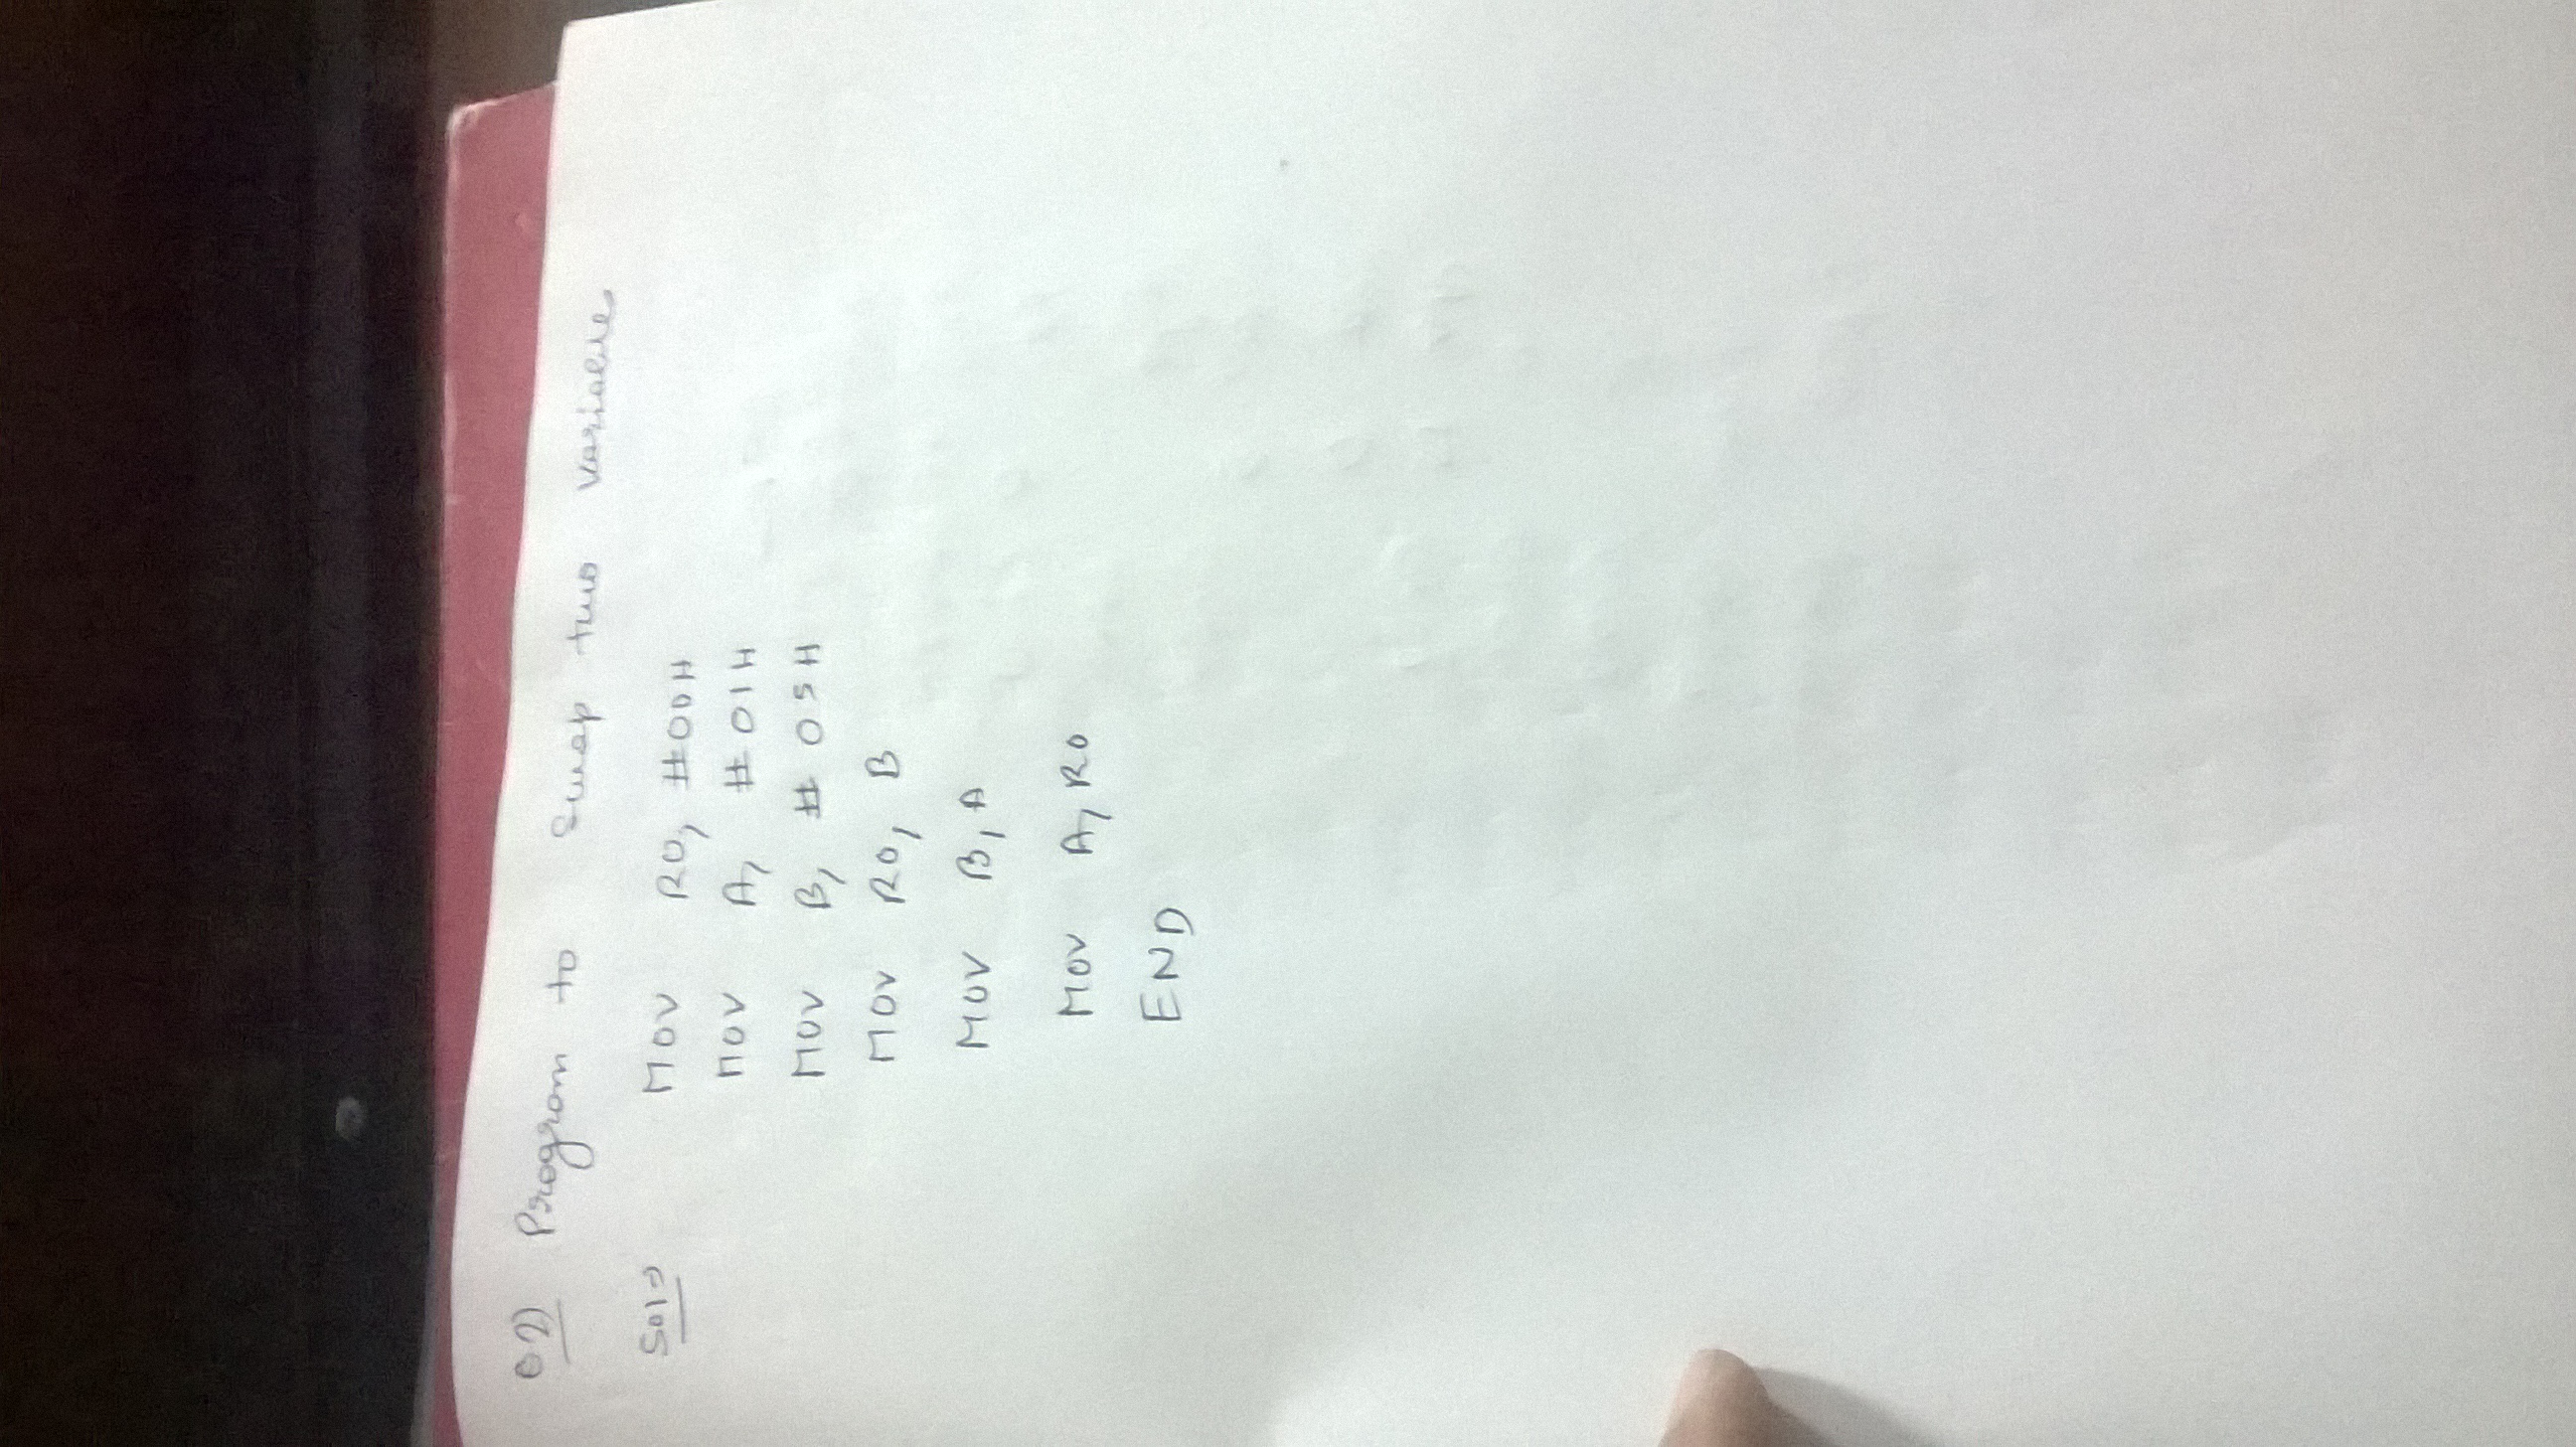 Q2) Program to Swap two variable
Sol⇒ MOV R0, #00H
MOV A, #01H
MOV B, #05H
MOV R0, B
MOV B, A
MOV A, R0
END